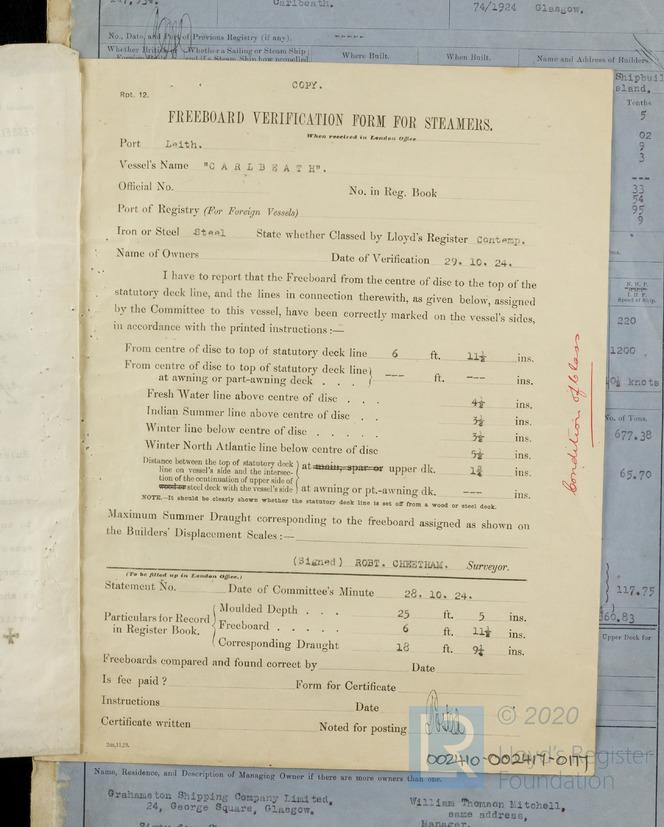 Carlbeath. 74/1924 Glasgow.
No., Date, and Port of Previous Registry (if any). -----
Where Built. When Built. Name and Address of Builders
COPY.
Rpt. 12.
FREEBOARD VERIFICATION FORM FOR STEAMERS.
When received in London Office
Port Leith.
Vessel's Name "CARLBEATH".
Official No. No. in Reg. Book
Port of Registry (For Foreign Vessels)
Iron or Steel Steel State whether Classed by Lloyd's Register Contemp.
Name of Owners Date of Verification 29. 10. 24.
I have to report that the Freeboard from the centre of disc to the top of the
statutory deck line, and the lines in connection therewith, as given below, assigned
by the Committee to this vessel, have been correctly marked on the vessel's sides,
in accordance with the printed instructions :—
From centre of disc to top of statutory deck line 6 ft. 11½ ins.
From centre of disc to top of statutory deck line
at awning or part-awning deck . . . --- ft. --- ins.
Fresh Water line above centre of disc . . . 4½ ins.
Indian Summer line above centre of disc . . 3½ ins.
Winter line below centre of disc . . . . . 3½ ins.
Winter North Atlantic line below centre of disc 5½ ins.
Distance between the top of statutory deck
line on vessel's side and the intersec-
tion of the continuation of upper side of
wood or steel deck with the vessel's side
at main, spar or upper dk. ins.
at awning or pt.-awning dk. --- ins.
NOTE.—It should be clearly shown whether the statutory deck line is set off from a wood or steel deck.
Maximum Summer Draught corresponding to the freeboard assigned as shown on
the Builders' Displacement Scales :—
(Signed) ROBT. CHEETHAM. Surveyor.
(To be filled up in London Office.)
Statement No. Date of Committee's Minute 28. 10. 24.
Particulars for Record
in Register Book.
Moulded Depth . . . 25 ft. 5 ins.
Freeboard . . . . . 6 ft. 11½ ins.
Corresponding Draught 18 ft. 9¼ ins.
Freeboards compared and found correct by Date
Is fee paid ? Form for Certificate
Instructions Date
Certificate written Noted for posting
2m,11,23.
Condition of Class
002410-002417-0177
LR © 2020
Lloyd's Register
Foundation
Tenths
5
02
9
3
---
33
54
95
9
N. H. P.
I. H. P.
Speed of Ship.
220
1200
10½ knots
No. of Tons.
677.38
65.70
117.75
560.83
Upper Deck for
Name, Residence, and Description of Managing Owner if there are more owners than one.
Grahamston Shipping Company Limited,
24, George Square, Glasgow.
William Thomson Mitchell,
same address,
Manager.